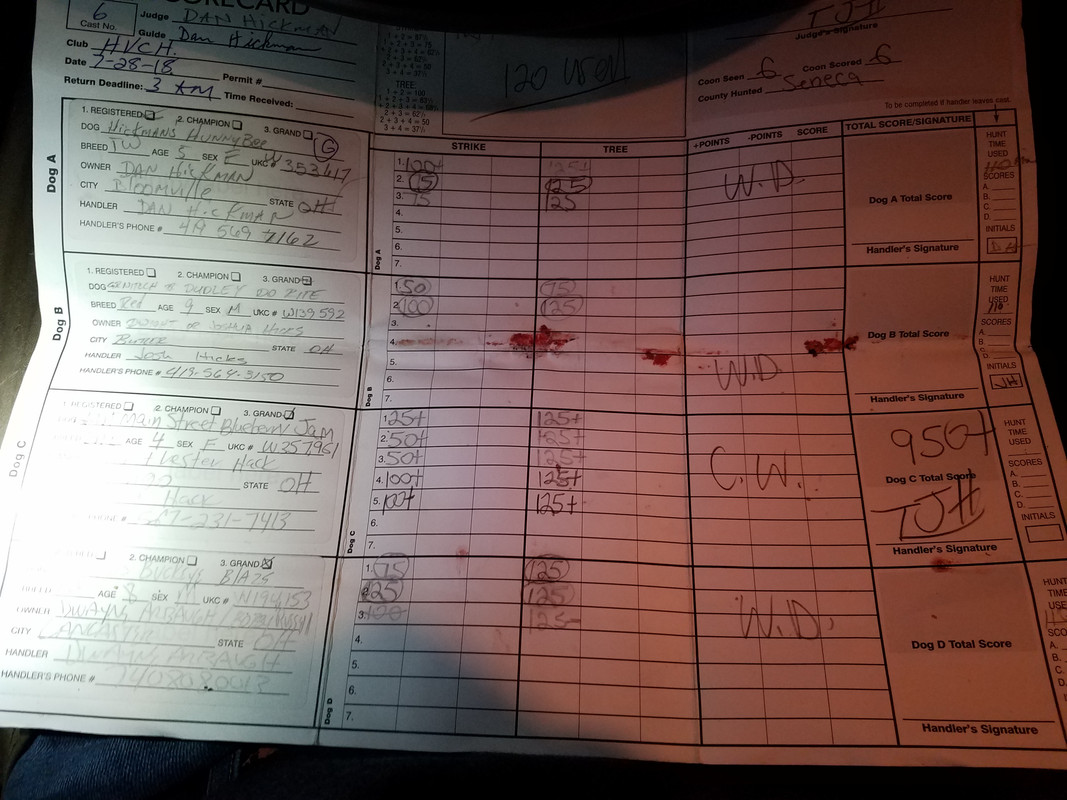 SCORECARD
6
Cast No.
Judge DAN HICKMAN
Guide Dan Hickman
Club HVCH
Date 7-28-18 Permit #
Return Deadline: 3 AM Time Received:
TREE
1 + 2 = 100
2 + 3 + 4 = 50
3 + 4 = 37½
120
TJH
Judge's Signature
Coon Seen 6 Coon Scored 6
County Hunted Seneca
To be completed if handler leaves cast.
STRIKE TREE +POINTS -POINTS SCORE TOTAL SCORE/SIGNATURE
Dog A
1. REGISTERED 2. CHAMPION 3. GRAND G
DOG HICKMANS HUNNYBEE
BREED TW AGE 5 SEX F UKC # 353417
OWNER DAN HICKMAN
CITY Bloomville STATE OH
HANDLER DAN HICKMAN
HANDLER'S PHONE # 419 569 7162
Dog A
1. 100+ 125+
2. 75 125
3. 75 125
4.
5.
6.
7.
W.D.
Dog A Total Score
Handler's Signature
HUNT
TIME
USED
SCORES
A.
B.
C.
D.
INITIALS
DH
Dog B
1. REGISTERED 2. CHAMPION 3. GRAND
DOG DUDLEY DO RITE
BREED Red AGE 9 SEX M UKC # W139592
OWNER DWIGHT or JOSHUA HICKS
CITY Butler STATE OH
HANDLER Josh Hicks
HANDLER'S PHONE # 419-564-3150
Dog B
1. 50 75
2. 100 125
3.
4.
5.
6.
7.
W.D.
Dog B Total Score
Handler's Signature
HUNT
TIME
USED
SCORES
A.
B.
D.
INITIALS
JH
Dog C
REGISTERED 2. CHAMPION 3. GRAND
Main Street Blueberry Jam
AGE 4 SEX F UKC # W357961
Chester Hack
STATE OH
Hack
231-7413
Dog C
1. 25+ 125+
2. 50+ 125+
3. 50+ 125+
4. 100+ 125+
5. 100+ 125+
6.
7.
C.W.
950+
Dog C Total Score
TJH
Handler's Signature
HUNT
TIME
USED
SCORES
A.
B.
C.
D.
INITIALS
2. CHAMPION 3. GRAND
AGE 8 SEX M UKC # N194153
OWNER
CITY LANCASTER STATE OH
HANDLER
HANDLER'S PHONE #
Dog D
1. 75 125
2. 25 125
3. 125
4.
5.
6.
7.
W.D.
Dog D Total Score
Handler's Signature
HUNT
TIME
USE
SCO
A.
B.
C.
D.
INITI